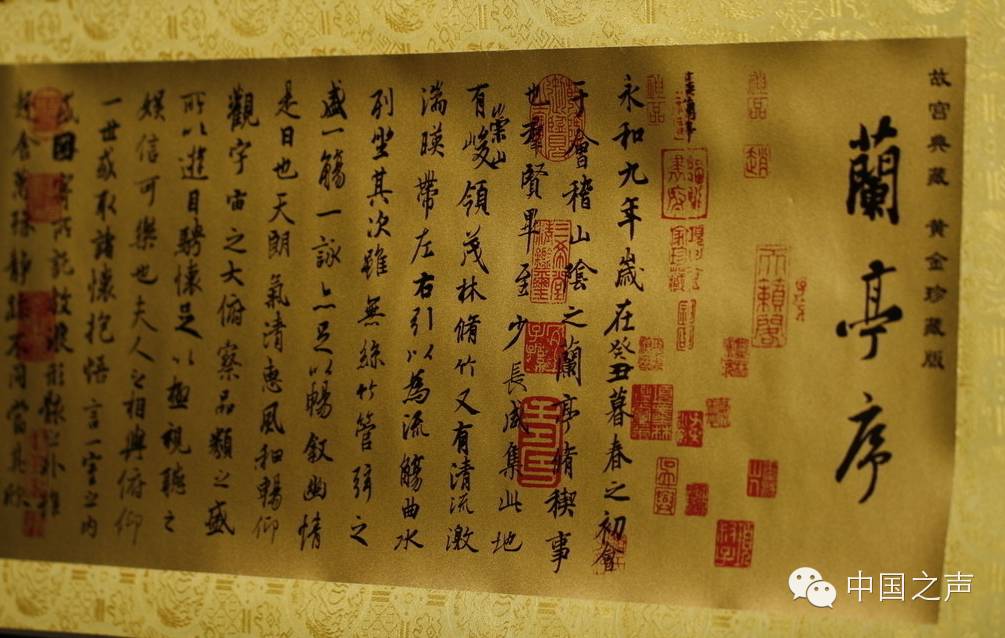 故宮典藏 黃金珍藏版
蘭亭序
永和九年歲在癸丑暮春之初會
于會稽山陰之蘭亭脩稧事
也羣賢畢至少長咸集此地
有崇山峻領茂林脩竹又有清流激
湍暎帶左右引以為流觴曲水
列坐其次雖無絲竹管弦之
盛一觴一詠亦足以暢敘幽情
是日也天朗氣清惠風和暢仰
觀宇宙之大俯察品類之盛
所以遊目騁懷足以極視聽之
娛信可樂也夫人之相與俯仰
一世或取諸懷抱悟言一室之內
或因寄所託放浪形骸之外雖
趣舍萬殊靜躁不同當其欣
中国之声